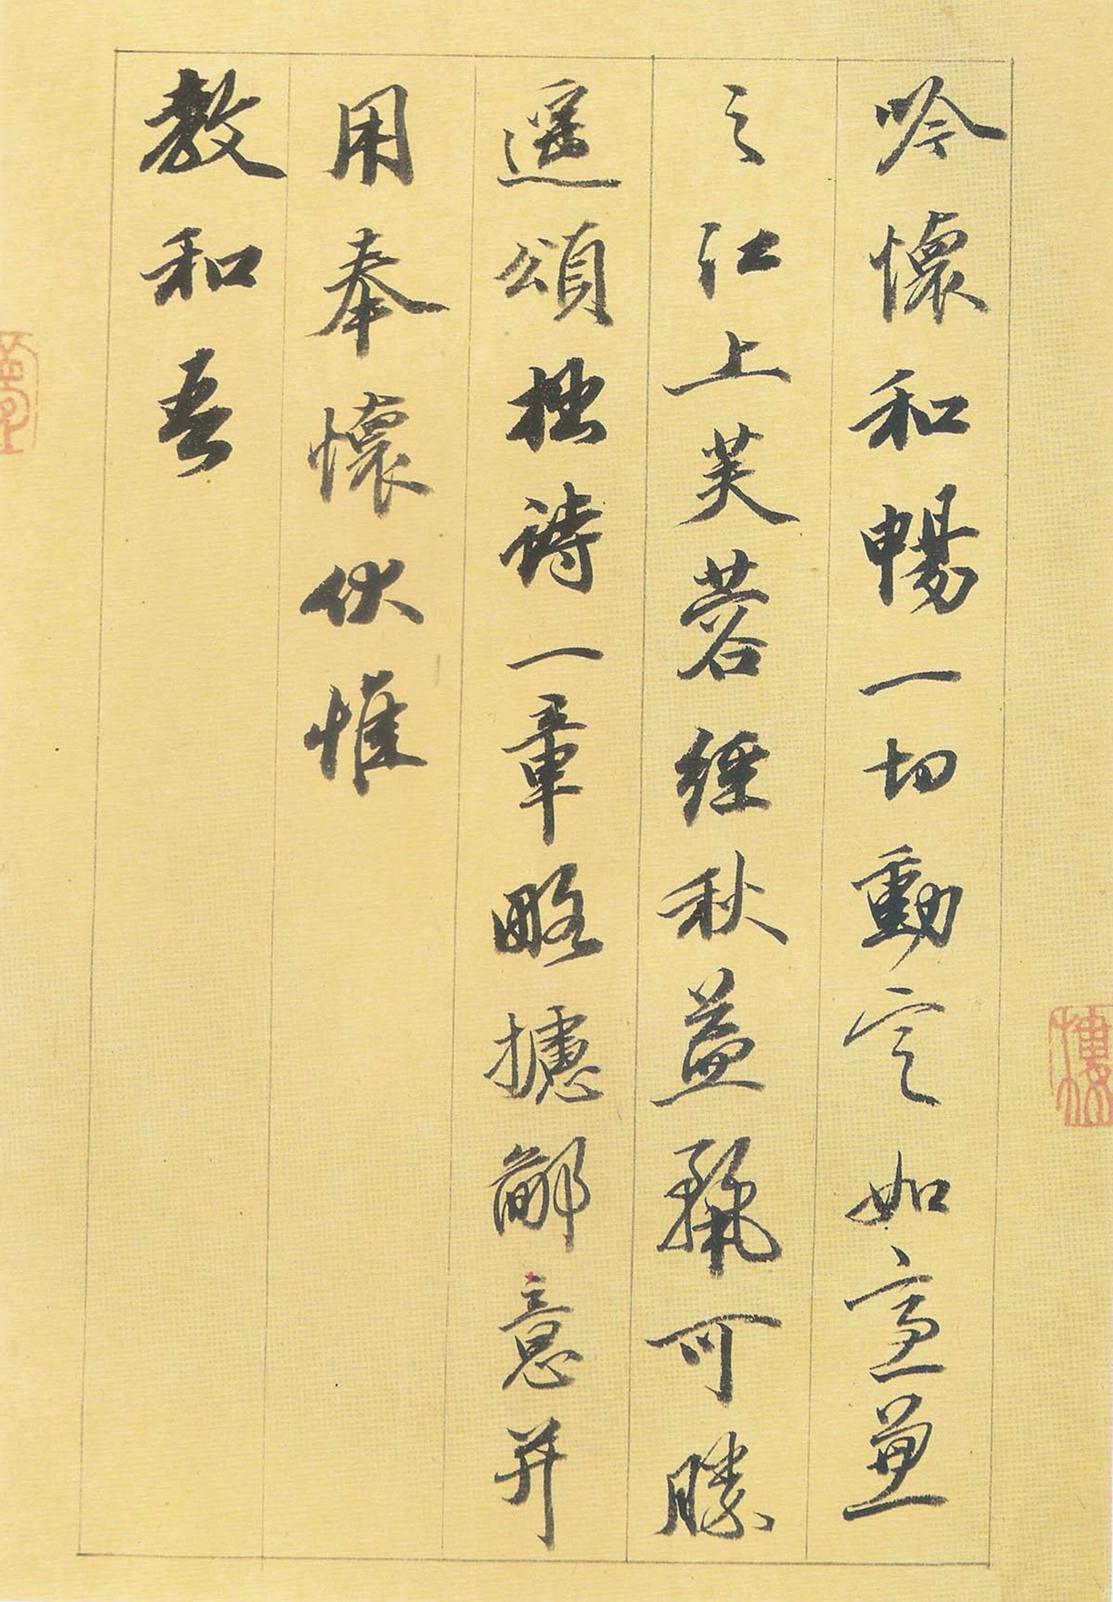 吟懷和暢一切動定如
之江上芙蓉經秋益可勝
遙頌拙詩一章略攄鄙意并
用奉懷伏惟
教和吾